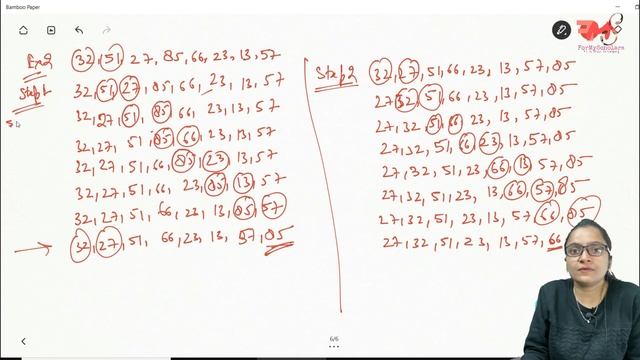 Bamboo Paper
ForMyScholars
32, 51, 27, 85, 66, 23, 13, 57
Step 1
32, 51, 27, 85, 66, 23, 13, 57
32, 27, 51, 85, 66, 23, 13, 57
32, 27, 51, 85, 66, 23, 13, 57
32, 27, 51, 66, 85, 23, 13, 57
32, 27, 51, 66, 23, 85, 13, 57
32, 27, 51, 66, 23, 13, 85, 57
32, 27, 51, 66, 23, 13, 57, 85
Step 2
32, 27, 51, 66, 23, 13, 57, 85
27, 32, 51, 66, 23, 13, 57, 85
27, 32, 51, 66, 23, 13, 57, 85
27, 32, 51, 66, 23, 13, 57, 85
27, 32, 51, 23, 66, 13, 57, 85
27, 32, 51, 23, 13, 66, 57, 85
27, 32, 51, 23, 13, 57, 66, 85
27, 32, 51, 23, 13, 57, 66
6/6